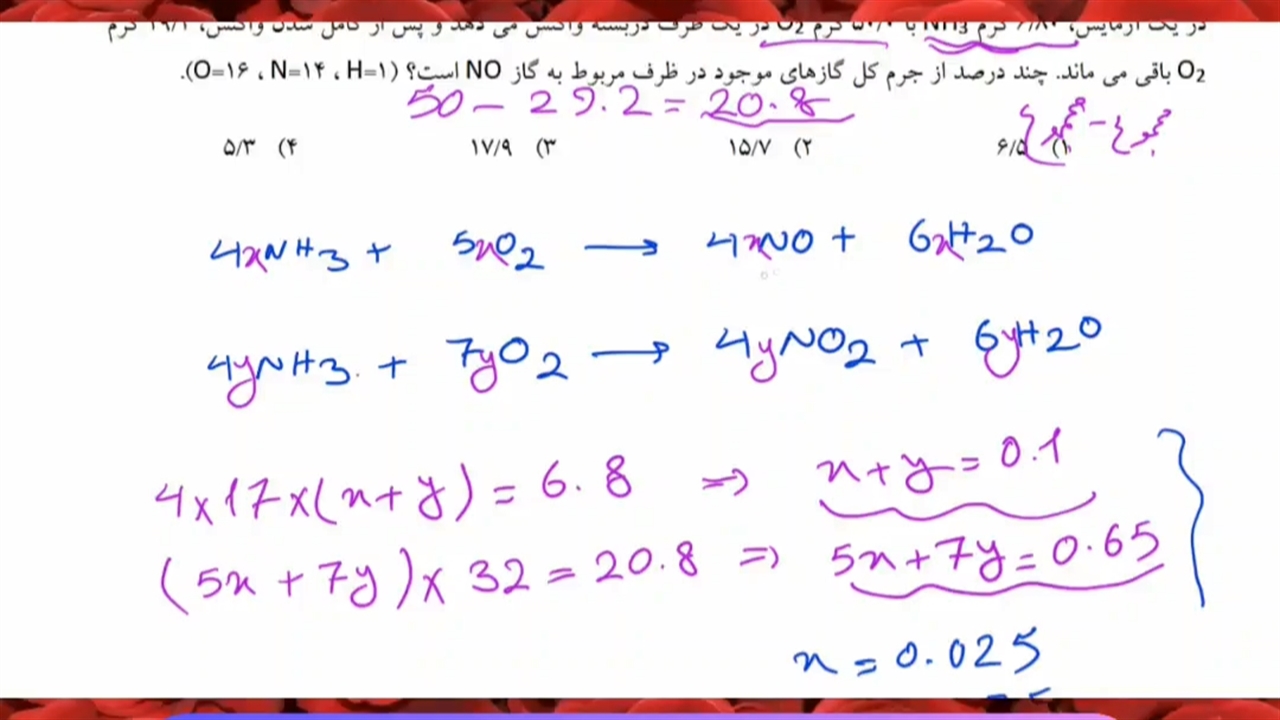 در یک آزمایش، ۶/۸۰ گرم NH3 با ۵۰/۰ گرم O2 در یک ظرف دربسته واکنش می دهد و پس از کامل شدن واکنش، گرم
O2 باقی می ماند. چند درصد از جرم کل گازهای موجود در ظرف مربوط به گاز NO است؟ (O=۱۶ ، N=۱۴ ، H=۱).
50 - 29.2 = 20.8
۱) ۶/۵ ۲) ۱۵/۷ ۳) ۱۷/۹ ۴) ۵/۳
4xNH3 + 5xO2 → 4xNO + 6xH2O
4yNH3 + 7yO2 → 4yNO2 + 6yH2O
4x17x(x+y) = 6.8 => x+y=0.1
(5x+7y)x32=20.8 => 5x+7y=0.65
x=0.025